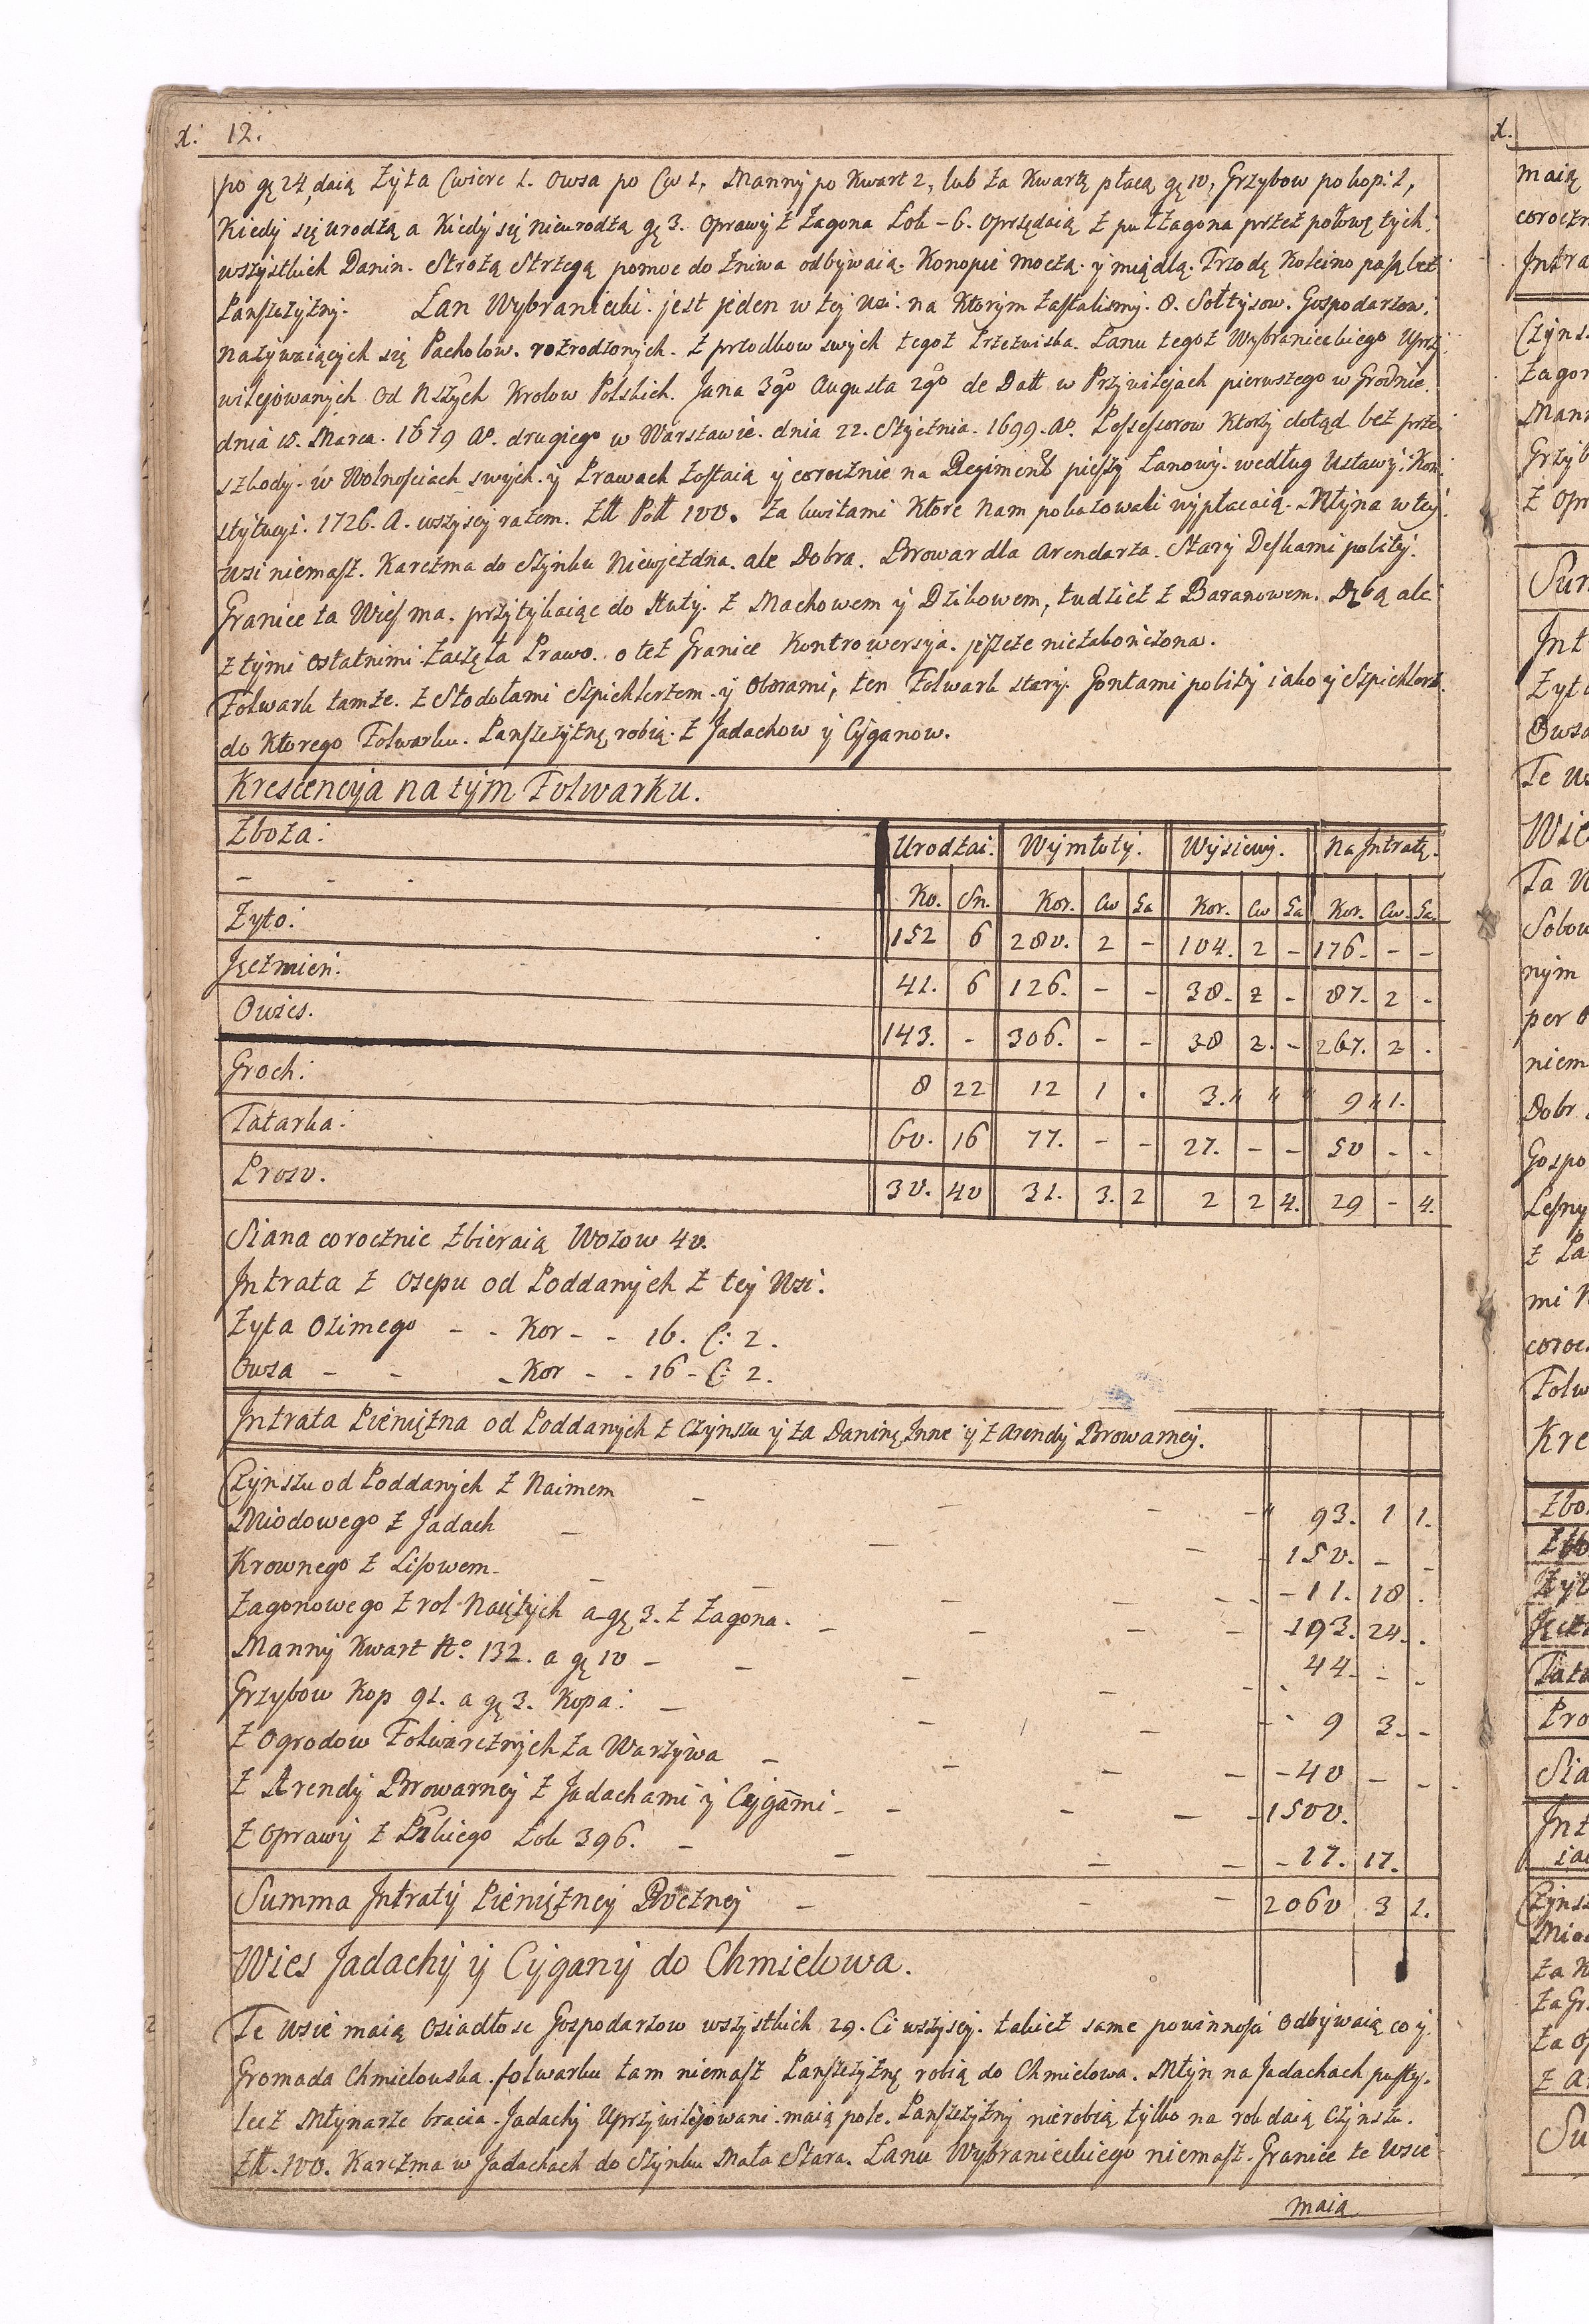 x. 12.
po gę 24, daią Zyta Cwierc 1. Owsa po Cw 1, Manny po Kwart 2, lub za Kwartę płacą gę 10, Grzybow po kop: 1,
Kiedy się urodzą a Kiedy się nieurodzą gę 3. Oprawy z Zagona Łok - 6. Oprzędaią z puł Zagona przez połowę tych
wszystkich Danin. Strożą Strzegą pomoc do Zniwa odbywaią. Konopie moczą y międlą. Trzodę Koleino pasą bez
Panszczyzny. Łan Wybraniecki jest jeden w tey Wsi na Ktorym zastalismy. 8. Sołtysow. Gospodarzow
nazywaiących się Pacholow. rozrodzonych. z przodkow swych tegoż Przezwiska. Łanu tegoż Wybranieckiego Uprzy
wilejowanych Od Nszych Krolow Polskich. Jana 3go Augusta 2go de Datt w Przywilejach pierwszego w Grodnie.
dnia 15. Marca. 1679 Ao. drugiego w Warszawie. dnia 22. Stycznia. 1699. Ao. Possessorow Ktorzy dotąd bez prze
szkody w Wolnościach swych y Prawach zostaią y corocznie na Regiment pieszy Łanowy. według Ustawy Kon
stytucyi. 1726. A. wszyscy razem. Złł Poll 100. Za kwitami Ktore Nam pokazowali wypłacaią. Młyna w tey
wsi niemasz. Karczma do Szynku Niewjezdna. ale Dobra. Browar dla Arendarza. Stary Deskami pobity.
Granice ta Wieś ma. przytykaiąc do Huty. z Machowem y Dzikowem, tudziesz z Baranowem. Dębą ale
z tymi ostatnimi zaczęta Prawo. o też Granice Kontrowersya. jeszcze niezakończona.
Folwark tamże. z Stodołami Szpichlerzem y Oborami, ten Folwark stary. Gontami pobity iako y Szpichlerz.
do Ktorego Folwarku. Panszczyznę robią. z Jadachow y Cyganow.
Krescencya na tym Folwarku.
Zboza: Urodzai. Wymłoty. Wysiewy. Na Intratę.
- - - Ko. Sn. Kor. Cw Ga Kor. Cw Ga Kor. Cw. Ga.
Zyto: 152 6 280. 2 - 104. 2 - 176. - -
Jęczmień. 41. 6 126. - - 38. 2 - 87. 2 -
Owies. 143. - 306. - - 38 2. - 267. 2 .
Groch: 8 22 12 1 . 3. " " " 9 " 1.
Tatarka: 60. 16 77. - - 27. - - 50 - -
Proso. 30. 40 31. 3. 2 2 2 4. 29 - 4.
Siana corocznie zbieraią Wozow 40.
Intrata z Osepu od Poddanych z tey Wsi.
Zyta Ozimego - - Kor - - 16. C: 2.
Owsa - - - Kor - - 16 - C: 2.
Intrata Pieniężna od Poddanych z Czynszu y za Daninę Inne y z Arendy Browarney.
Czynszu od Poddanych z Naimem - - - - " 93. 1 1.
Miodowego z Jadach - - - 150. - -
Krownego z Lisowem - - - - - 11. 18 .
Zagonowego z rol Naiętych a gę 3. z Zagona. - - - - 193. 24. .
Manny Kwart No. 132. a gę 10 - - - - 44 - -
Grzybow Kop 91. a gę 3. Kopa: - - - - 9 3. -
Z Ogrodow Folwarcznych za Warzywa - - - - - 40 - -
Z Arendy Browarney z Jadachami y Cygāmi - - - - - 1500.
Z Oprawy z Pĩlkiego Łok 396. - - - - - 17. 17.
Summa Intraty Pieniężney Roczney - - - 2060 3 1.
Wies Jadachy y Cygany do Chmielowa.
Te Wsie maią Osiadłosc Gospodarzow wszystkich 29. Ci wszyscy. takiez same powinnosci Odbywaią co y
Gromada Chmielowska. folwarku tam niemasz Panszczyznę robią do Chmielowa. Młyn na Jadachach pusty.
lecz Młynarze bracia. Jadachy Uprzywilejowani maią pole. Panszczyzny nierobią tylko na rok daią Czynszu.
Złł. 100. Karczma w Jadachach do Szynku Mała Stara. Łanu Wybranieckiego niemasz. Granice te Wsie
maią